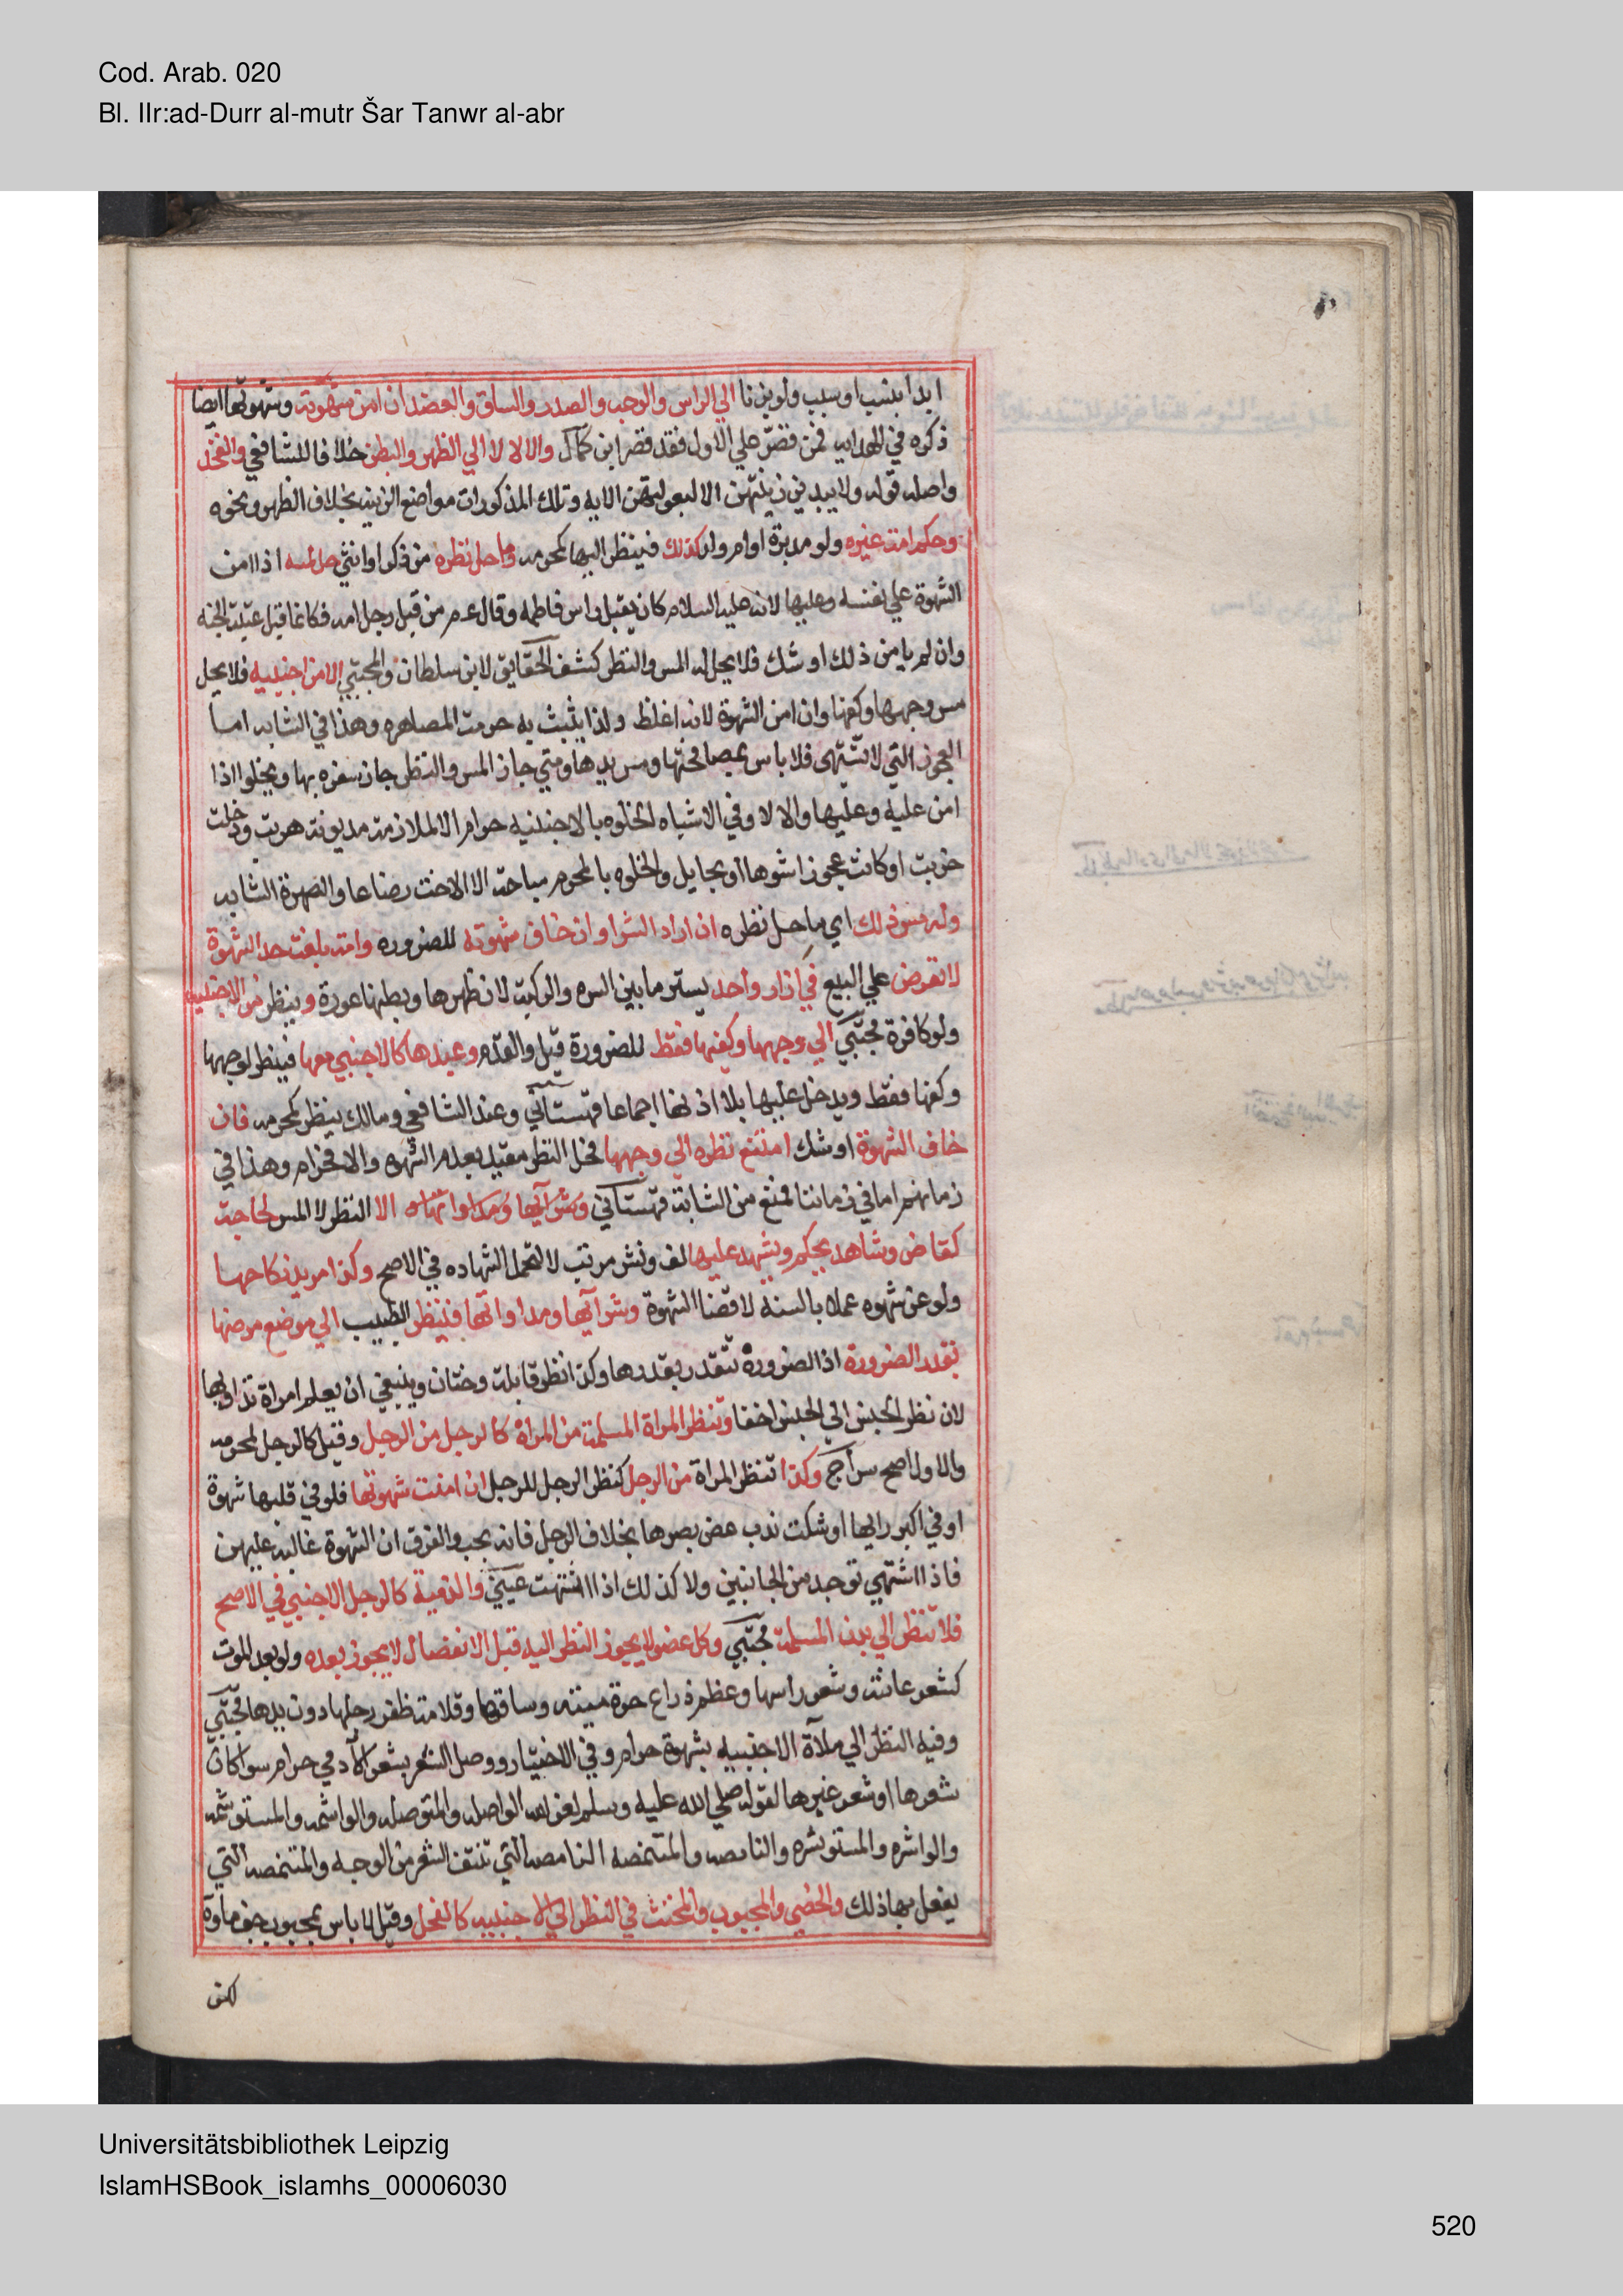 Cod. Arab. 020
Bl. IIr:ad-Durr al-mutr Šar Tanwr al-abr
ابدا بنسب او سبب ولو بزنا الي الراس والوجه والصدر والساق والعضد ان امن شهوته وشهوتها ايضا
ذكره في الهدايه فمن قصر علي الاول فقد قصر ابن كمال والا لا لا الي الظهر والبطن خلافا للشافعي والفخذ
واصله قوله ولا يبدين زينتهن الا لبعولتهن الايه وتلك المذكورات مواضع الزينه بخلاف الظهر ونحوه
وحكم امة غيره ولو مدبرة او ام ولد كذلك فينظر اليها كمحرمه وما حل نظره من ذكر او انثي حل لمسه اذا امن
الشهوة علي نفسه وعليها لانه عليه السلام كان يقبل راس فاطمه وقال عم من قبل رجل امه فكانما قبل عتبة الجنه
وان لم يامن ذلك او شك فلا يحل له المس والنظر كشف الحقايق لابن سلطان والمجتبي الا من اجنبيه فلا يحل
مس وجهها وكفها وان امن الشهوة لانه اغلظ ولذا يثبت به حرمت المصاهره وهذا في الشابه اما
العجوز التي لا تشتهي فلا باس بمصافحتها ومس يدها ومتي جاز المس والنظر جاز سفره بها ويخلوا اذا
امن عليه وعليها والا لا وفي الاشباه الخلوه بالاجنبيه حرام الا لملازمة مديونة هربت ودخلت
خربت او كانت عجوز اشوها او بحايل والخلوه بالمحرم مباحة الا الاخت رضاعا والصهرة الشابه
وله مس ذلك اي ما حل نظره ان اراد الشرا وان خاف شهوته للضروره وامة بلغت حد الشهوة
لا تعرض علي البيع في ازار واحد يستر ما بين السره والركبة لان ظهرها وبطنها عورة وينظر من الاجنبيه
ولو كافرة مجتبي الي وجهها وكفيها فقط للضرورة قيل والقدم وعبدها كالاجنبي معها فينظر لوجهها
وكفها فقط ويدخل عليها بلا اذنها اجماعا قهستاني وعند الشافعي ومالك ينظر كمحرمه فان
خاف الشهوة او شك امتنع نظره الي وجهها فحل النظر مقيد بعدم الشهوه والا فحرام وهذا في
زمانهم اما في زماننا فمنع من الشابة قهستاني وشرآيها ومداواتها الا النظر لا المس لحاجة
كقاض وشاهد يحكم ويشهد عليها لف ونشر مرتب لا لتحمل الشهاده في الاصح وكذا مريد نكاحها
ولو عن شهوه عملا بالسنه لا قضا الشهوة وشرآيها ومداواتها فينظر الطبيب الي موضع مرضها
بقدر الضرورة اذ الضرورة تتقدر بقدرها وكذا نظر قابلة وختان وينبغي ان يعلم امراة تداويها
لان نظر الجنس الي الجنس اخف وتنظر المراة المسلمة من المراة كالرجل من الرجل وقيل كالرجل لمحرمه
والاول اصح سراج وكذا تنظر المراة من الرجل كنظر الرجل للرجل ان امنت شهوتها فلو في قلبها شهوة
او في اكبر رايها او شكت ندب غض بصرها بخلاف الرجل فانه يجب والفرق ان الشهوة غالبه عليهن
فاذا اشتهي توجد من الجانبين ولا كذلك اذا اشتهت عيني والذمية كالرجل الاجنبي في الاصح
فلا تنظر الي بدن المسلمة مجتبي وكل عضو لا يجوز النظر اليه قبل الانفصال لا يجوز بعده ولو بعد الموت
كشعر عانة وشعر راسها وعظم ذراع حرة ميته وساقها وقلامة ظفر رجلها دون يدها مجتبي
وفيه النظر الي ملآة الاجنبيه بشهوة حرام وفي الاختيار ووصل الشعر بشعر الآدمي حرام سوا كان
شعرها او شعر غيرها لقوله صلي الله عليه وسلم لعن الله الواصله والمتوصله والواشمه والمستوشمه
والواشره والمستوشره والنامصه والمتنمصه النامصه التي تنتف الشعر من الوجه والمتنمصه التي
يفعل بها ذلك والخصي والمجبوب والمخنث في النظر الي الاجنبيه كالفحل وقيل لا باس بمجبوب جف ماوه
لكن
Universitätsbibliothek Leipzig
IslamHSBook_islamhs_00006030
520